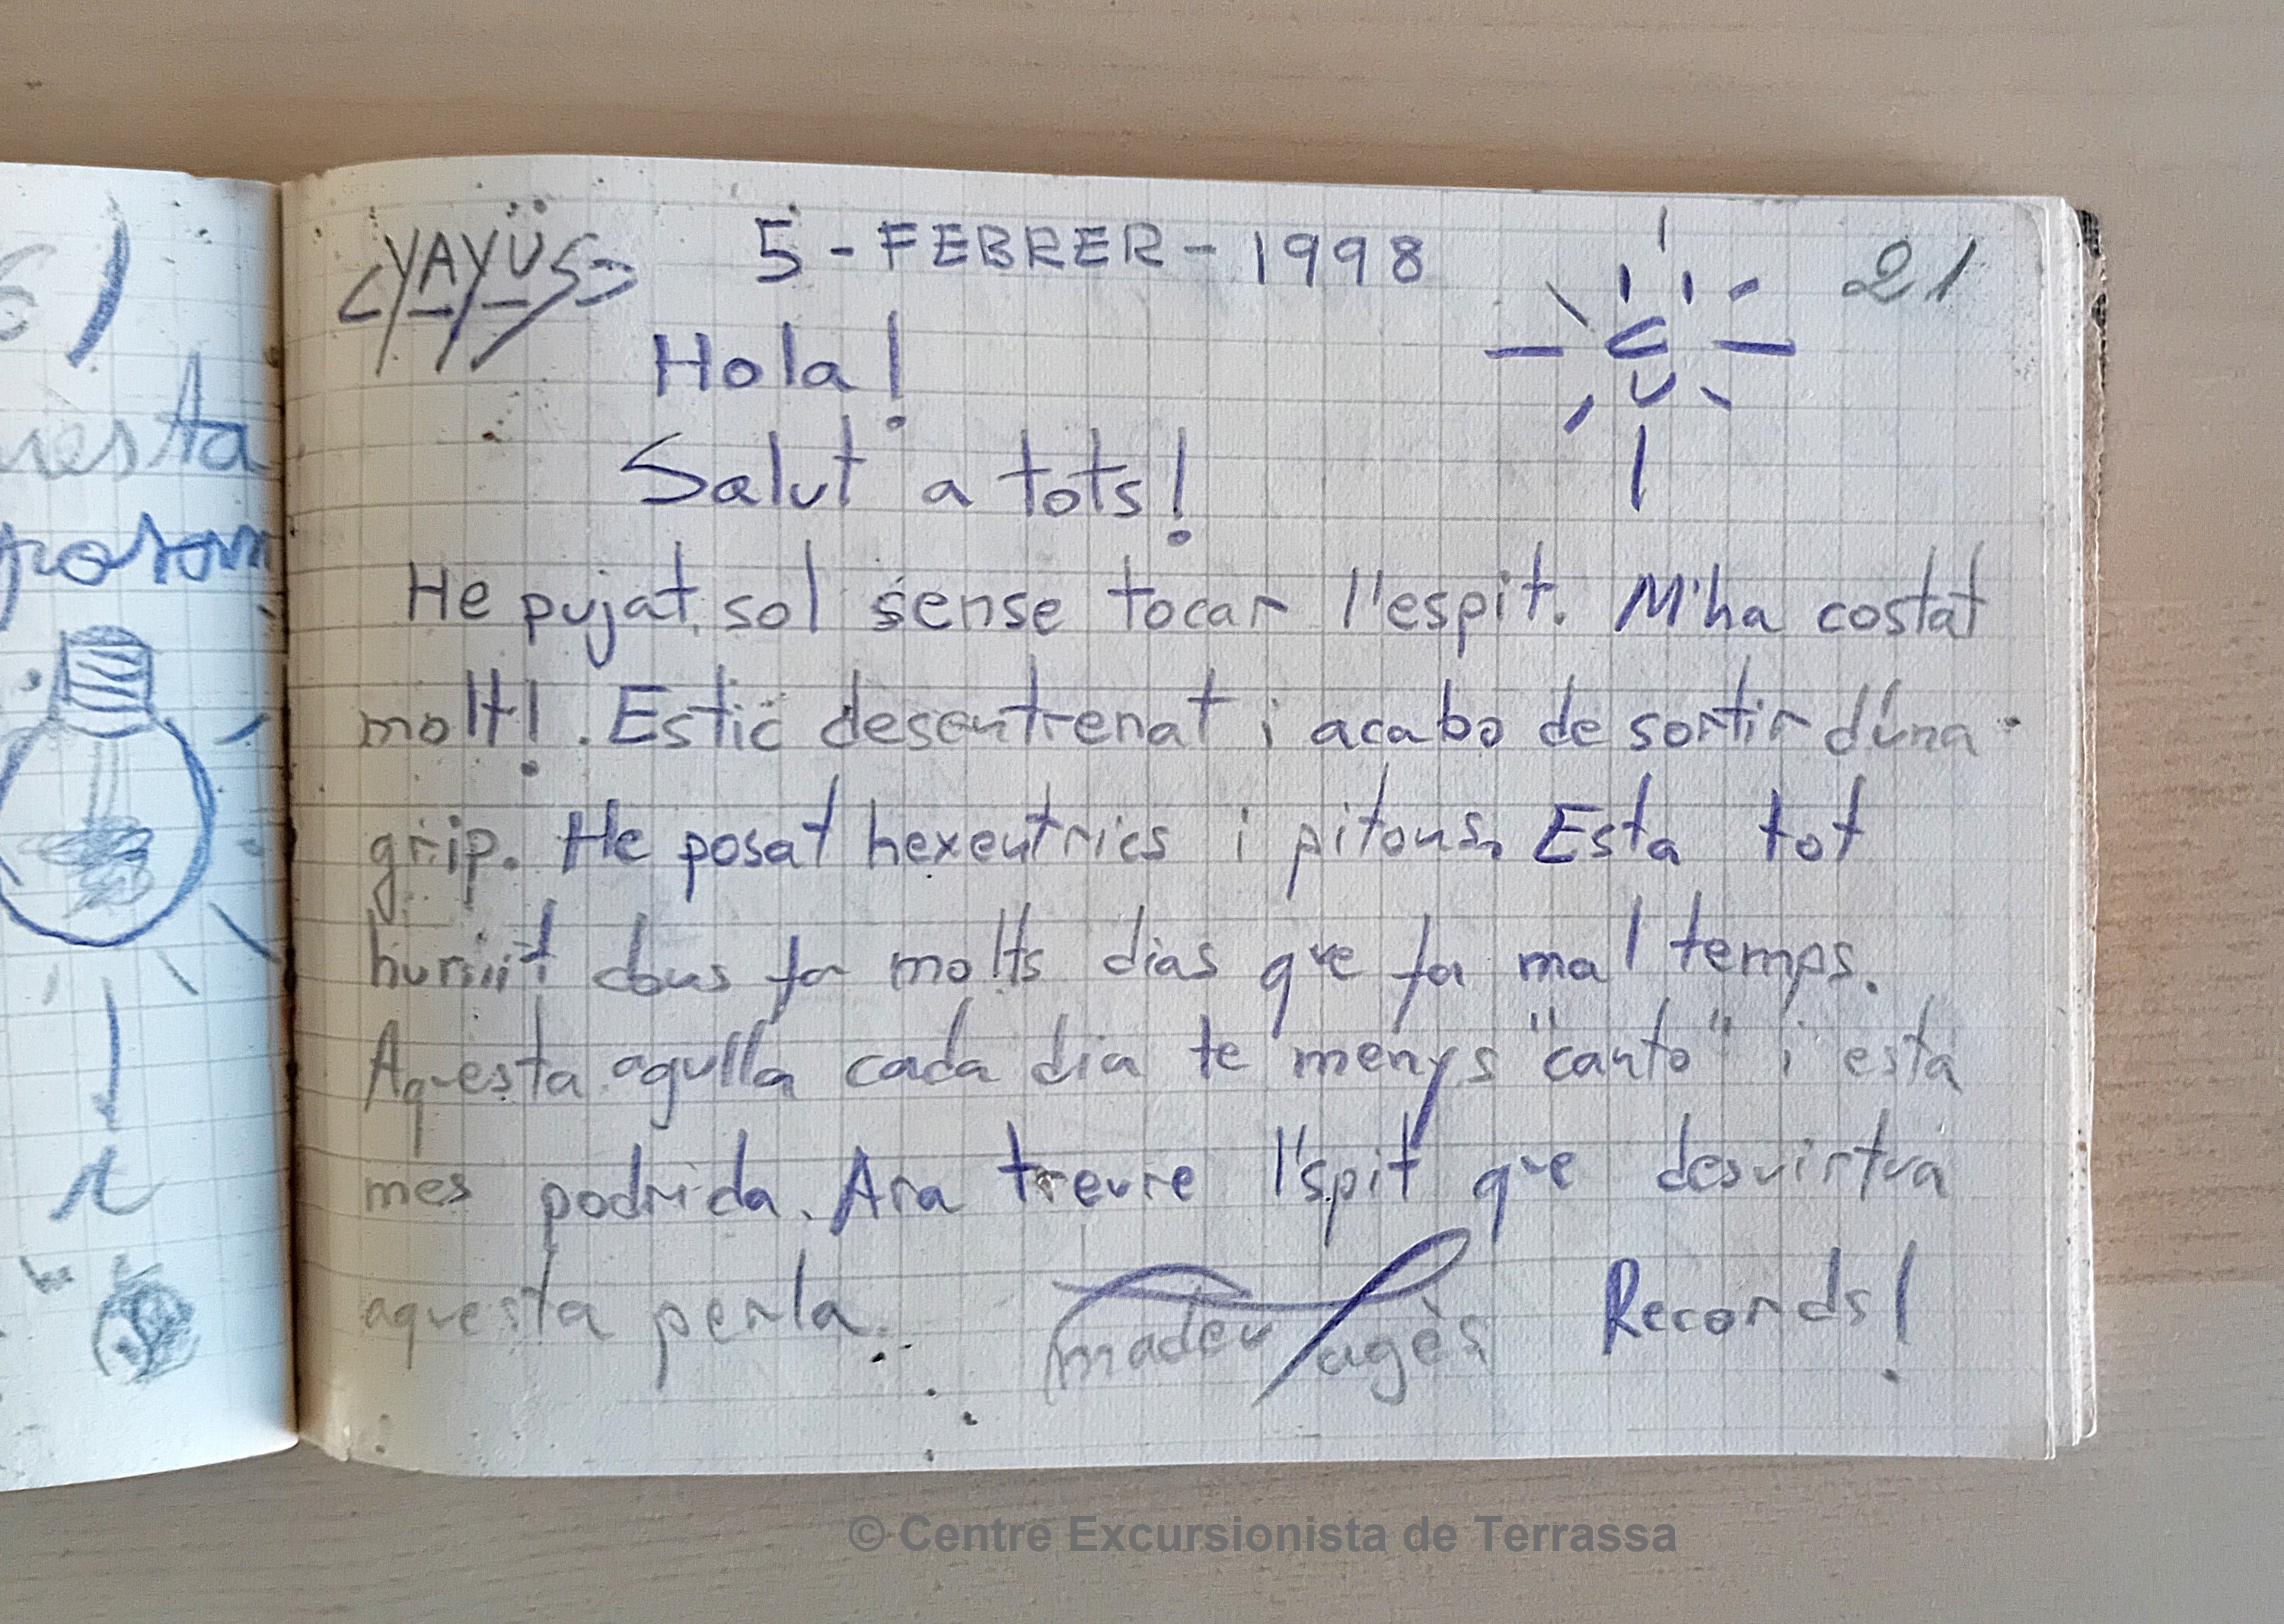 6)
resta
posom
YAYÜS 5-FEBRER-1998 21
Hola!
Salut a tots!
He pujat, sol sense tocar l'espit. M'ha costat
molt!. Estic desentrenat i acabo de sortir d'una
grip. He posat hexentrics i pitons. Esta tot
humit dons fa molts dias que fa mal temps.
Aquesta agulla cada dia te menys "canto" i esta
mes podrida. Ara treure l'spit que desvirtua
aquesta perla.
Amadeu Pagès Records!
© Centre Excursionista de Terrassa